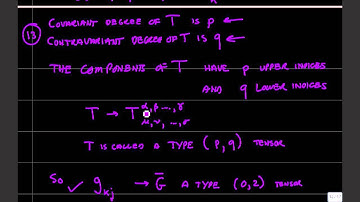 13 COVARIANT DEGREE OF T IS p ←
CONTRAVARIANT DEGREE OF T IS q ←
THE COMPONENTS OF T HAVE p UPPER INDICES
AND q LOWER INDICES
T → T^{α, β ..., γ}_{μ, ν, ..., σ}
T IS CALLED A TYPE (p, q) TENSOR
So ✓ g_{ij} → G̅ A TYPE (0,2) TENSOR